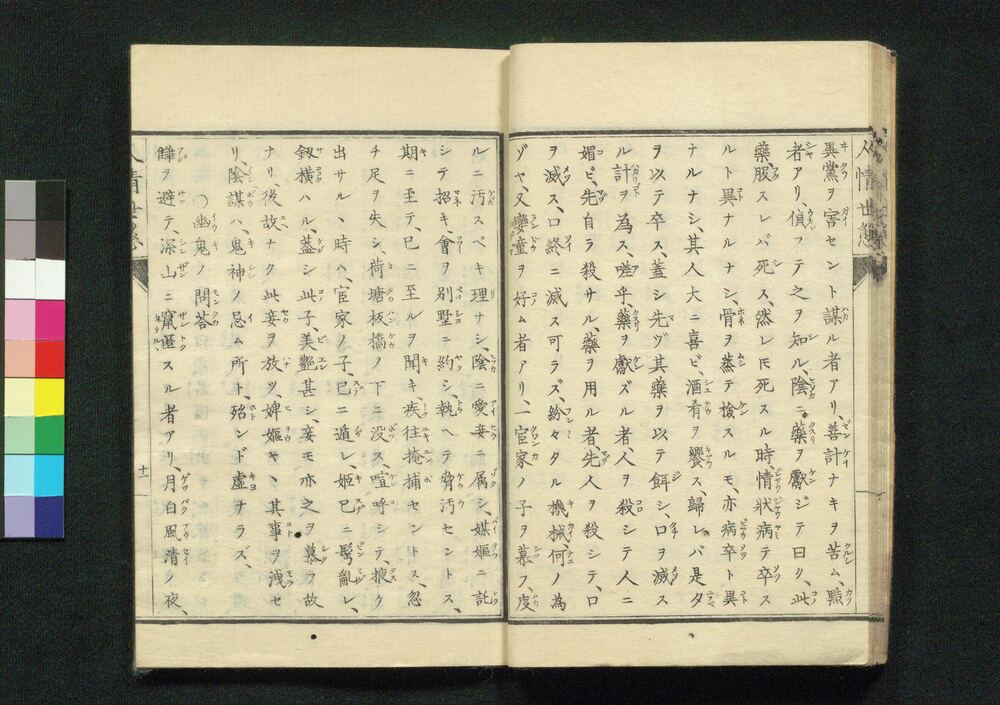 異黨ヲ害セント謀ル者アリ、善計ナキヲ苦ム、黠
者アリ、偵フテ之ヲ知ル、陰ニ藥ヲ獻ジテ曰ク、此
藥、腹スレバ死ス、然レ𪜈死スル時、情状病テ卒ス
ルト異ナルナシ、骨ヲ蒸テ檢スルモ、亦病卒ト異
ナルナシ、其人大ニ喜ビ、酒肴ヲ饗ス、歸レバ是タ
ヲ以テ卒ス、蓋シ先ヅ其藥ヲ以テ餌シ、口ヲ滅ス
ル計ヲ為ス、嗟乎、藥ヲ獻ズル者、人ヲ殺シテ人ニ
媚ビ、先自ラ殺サル、藥ヲ用ル者、先人ヲ殺シテ、口
ヲ滅ス、口終ニ滅ス可ラズ、紛々タル機械、何ノ為
ゾヤ、又孌童ヲ好ム者アリ、一宦家ノ子ヲ慕フ、度
ルニ汚スベキ理ナシ、陰ニ愛妾ニ属シ、媒嫗ニ託
シテ招キ、會ヲ別墅ニ約シ、執ヘテ脅汚セントス、
期ニ至テ、已ニ至ルヲ聞キ、疾往掩捕セントス、忽
チ足ヲ失シ、荷塘板橋ノ下ニ没ス、喧呼シテ、掖ク
出サルヽ時ハ、宦家ノ子、已ニ遁レ、姫已ニ髩亂レ、
釵横ハル、蓋シ此子、美艶甚シ、妾モ亦之ヲ慕フ故
ナリ、後故ナク此妾ヲ放ツ、婢嫗ヤヽ其事ヲ洩セ
リ、陰謀ハ、鬼神ノ忌ム所ト、殆ンド虚ナラズ、
○幽鬼ノ問荅
讎ヲ避テ、深山ニ竄匿スル者アリ、月白風清ク夜、
十一